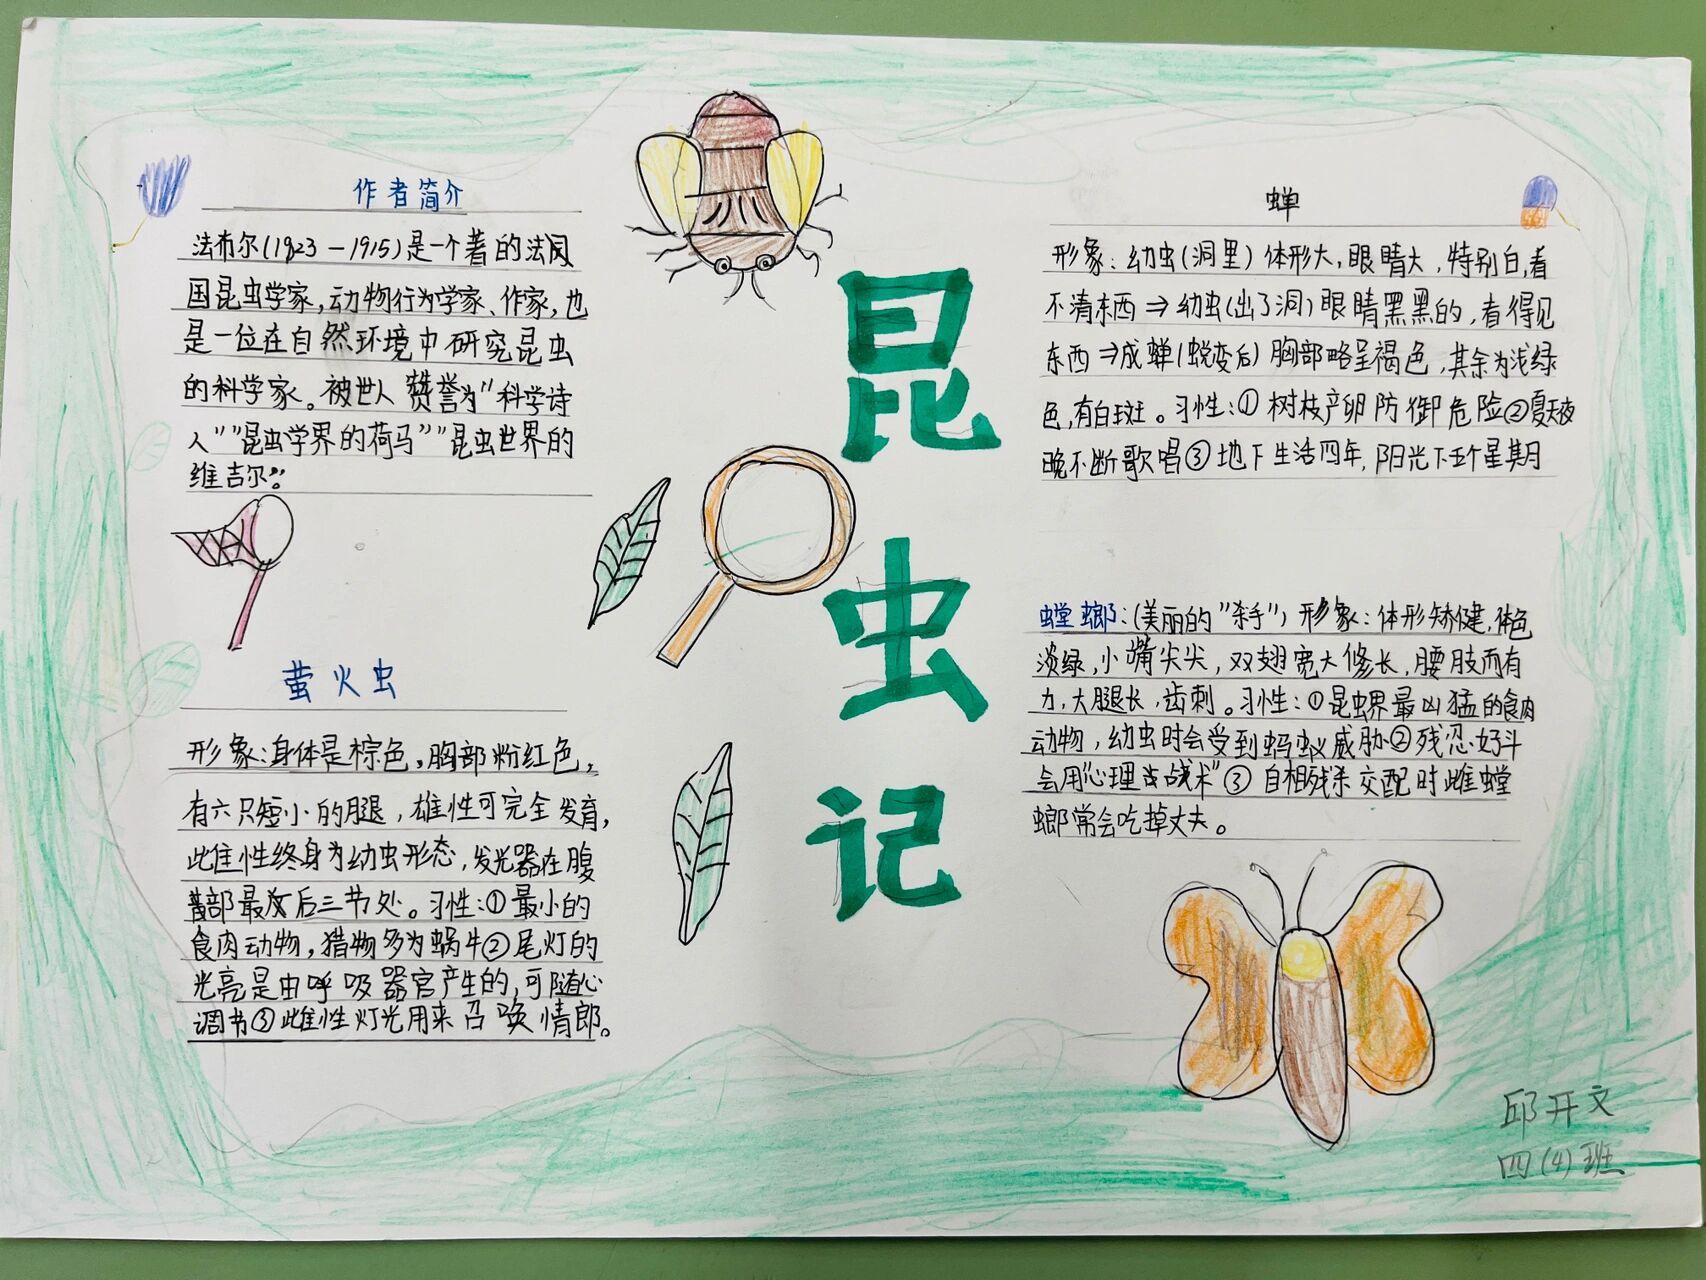 作者简介
法布尔(1923-1915)是一个著的法国
国昆虫学家,动物行为学家、作家,也
是一位在自然环境中研究昆虫
的科学家。被世人赞誉为"科学诗
人""昆虫学界的荷马""昆虫世界的
维吉尔"。
萤火虫
形象:身体是棕色,胸部粉红色,
有六只短小的腿,雄性可完全发育,
此雌性终身为幼虫形态,发光器在腹
部最后三节处。习性:①最小的
食肉动物,猎物多为蜗牛②尾灯的
光亮是由呼吸器官产生的,可随心
调节③雌性灯光用来召唤情郎。
昆虫记
蝉
形象:幼虫(洞里)体形大,眼睛大,特别白,看
不清东西⇒幼虫(出了洞)眼睛黑黑的,看得见
东西⇒成蝉(蜕变后)胸部略呈褐色,其余为浅绿
色,有白斑。习性:①树枝产卵防御危险②夏天夜
晚不断歌唱③地下生活四年,阳光下五个星期
螳螂:(美丽的"杀手")形象:体形矫健,体色
淡绿,小嘴尖尖,双翅宽大修长,腰肢而有
力,大腿长,齿刺。习性:①昆虫界最凶猛的食肉
动物,幼虫时会受到蚂蚁威胁②残忍好斗
会用"心理战术"③自相残杀交配时雌螳
螂常会吃掉丈夫。
邱开文
四(4)班